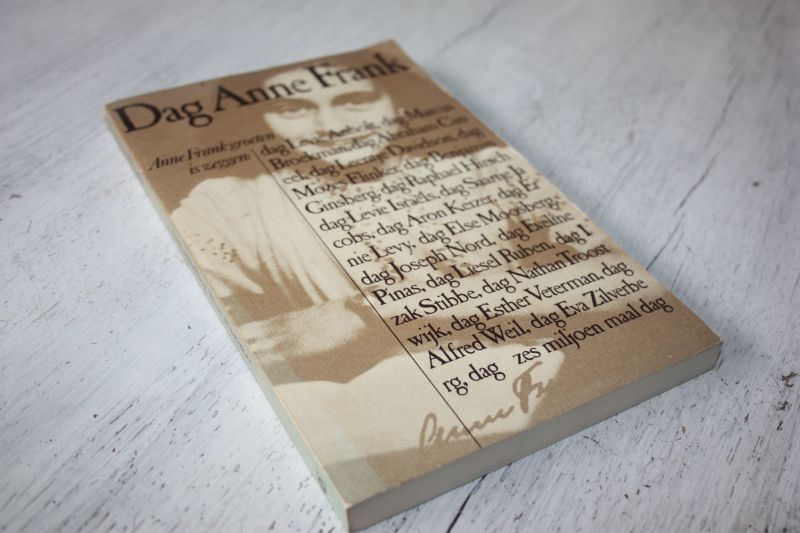 Dag Anne Frank
Anne Frank groeten
is zeggen:
dag Levie Abholz, dag Marcus
Broekman, dag Abraham Can
eel, dag Leentje Davidson, dag
Mozes Flinker, dag Benjamin
Ginsberg, dag Raphael Hirsch
dag Levie Israels, dag Saartje Ja
cobs, dag Aron Keizer, dag Er
nie Levy, dag Else Moosberg,
dag Joseph Nord, dag Eveline
Pinas, dag Liesel Ruben, dag I
zak Stibbe, dag Nathan Troost
wijk, dag Esther Veterman, dag
Alfred Weil, dag Eva Zilverbe
rg, dag zes miljoen maal dag
Anne Fr